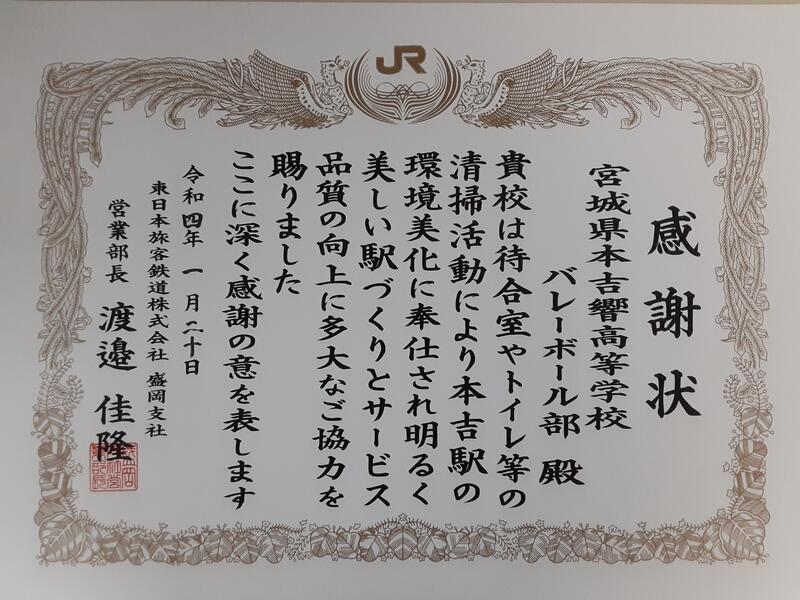 JR
感謝状
宮城県本吉響高等学校
バレーボール部 殿
貴校は待合室やトイレ等の
清掃活動により本吉駅の
環境美化に奉仕され明るく
美しい駅づくりとサービス
品質の向上に多大なご協力を
賜りました
ここに深く感謝の意を表します
令和四年 一月二十日
東日本旅客鉄道株式会社 盛岡支社
営業部長 渡邉 佳隆